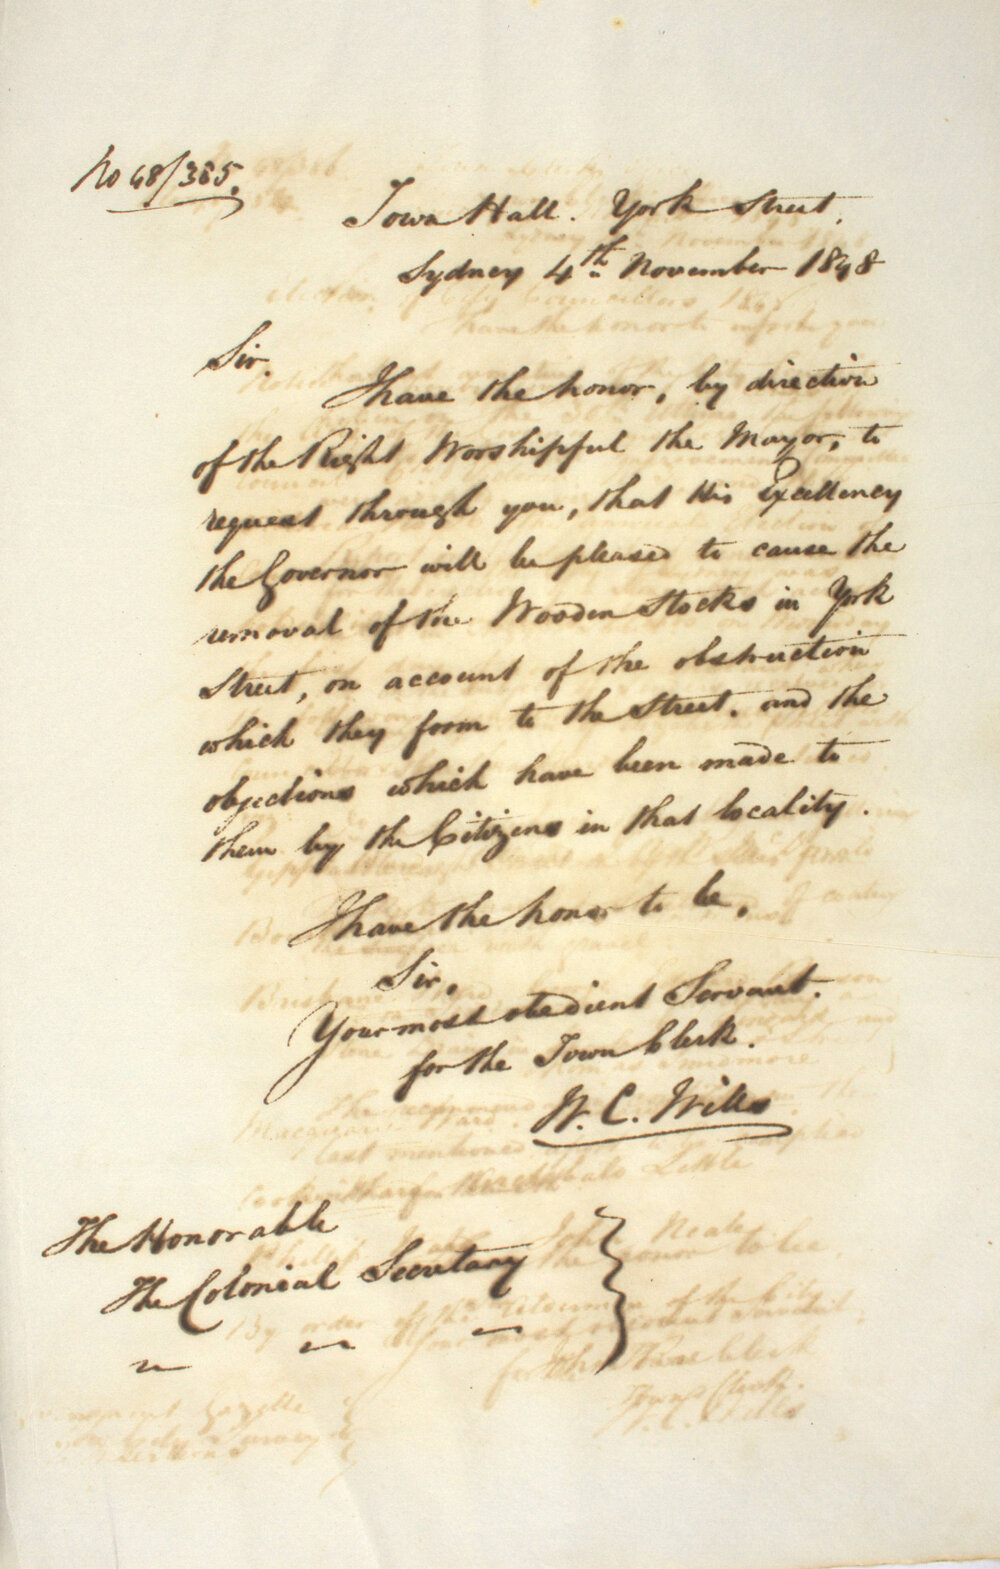 No 48/385.
Town Hall. York Street.
Sydney 4th November 1848
Sir.
I have the honor, by direction
of the Right Worshipful the Mayor, to
request through you, that His Excellency
the Governor will be pleased to cause the
removal of the Wooden Stocks in York
Street, on account of the obstruction
which they form to the Street. and the
objections which have been made to
them by the Citizens in that locality.
I have the honor to be,
Sir,
Your most obedient Servant.
for the Town Clerk.
W. C. Wills
The Honorable
The Colonial Secretary